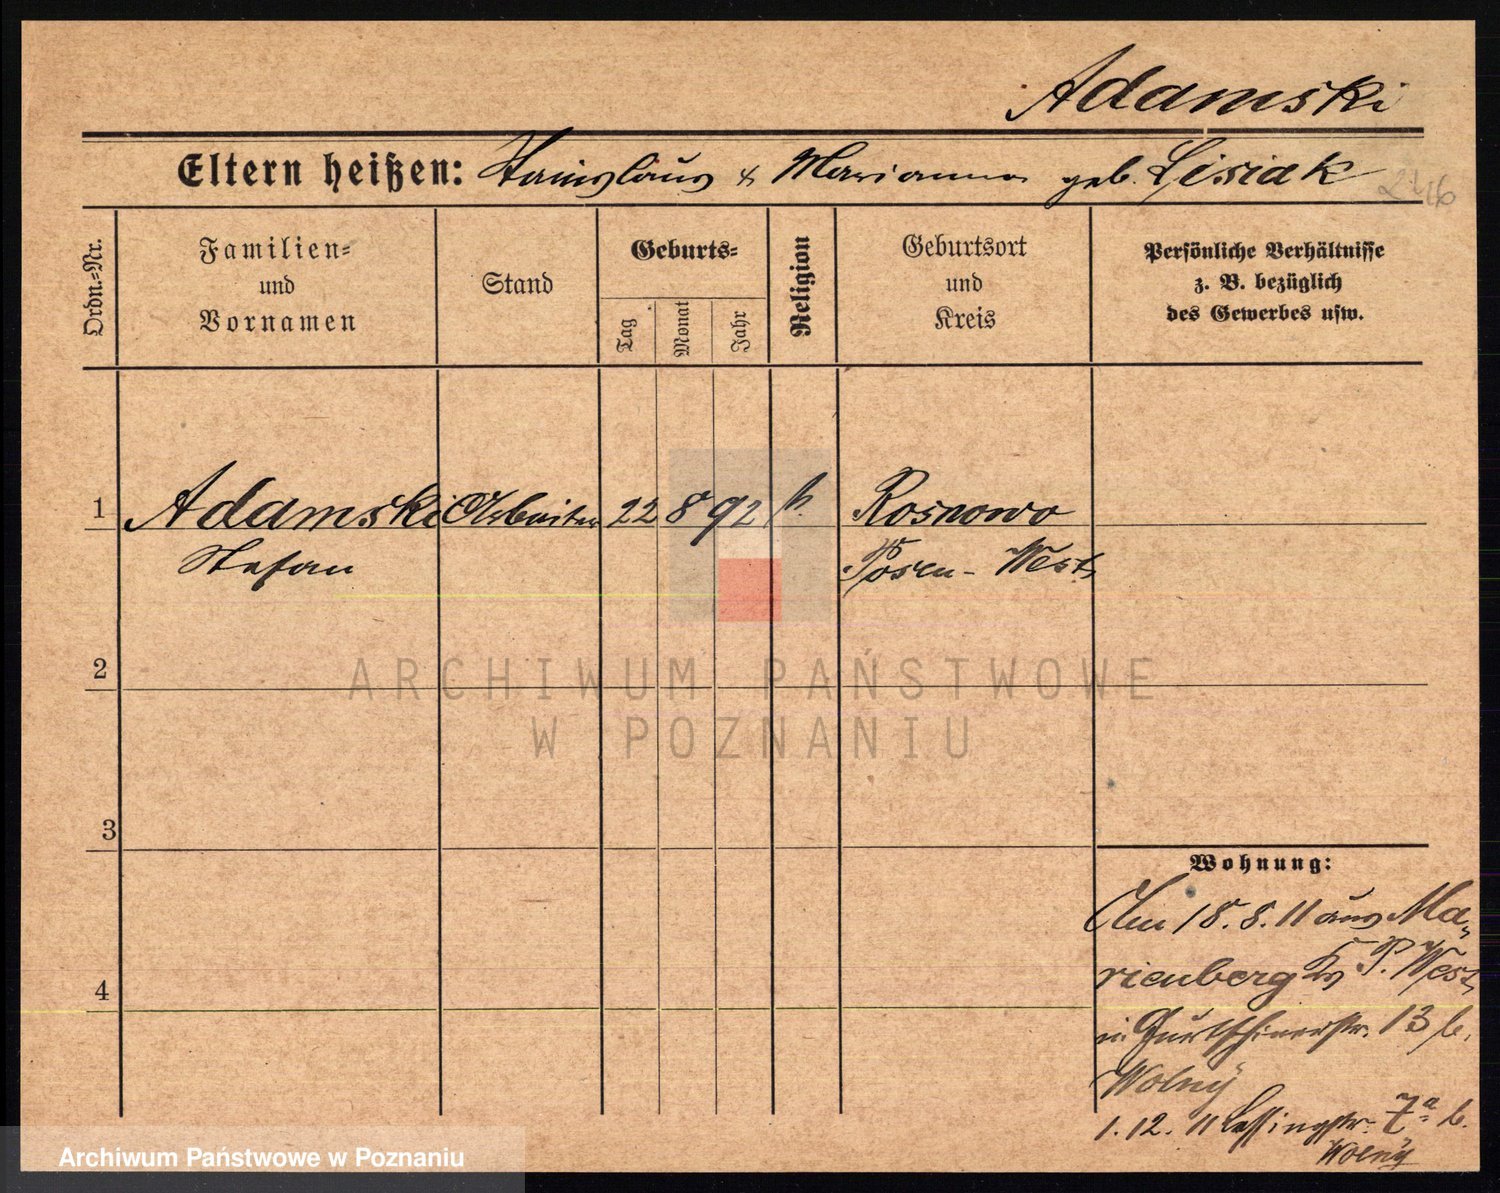 Adamski
Eltern heißen: Stanislaus & Marianna geb. Lisiak
Ordn.=Nr.
Familien=
und
Vornamen
Stand
Geburts=
Tag
Monat
Jahr
Religion
Geburtsort
und
Kreis
Persönliche Verhältnisse
z. B. bezüglich
des Gewerbes usw.
1 Adamski Arbeiter 22 8 92 k. Rosnowo
Stefan Posen-West
2
3
4
Wohnung:
Am 18.8.11 aus Ma-
rienberg Kr. P. West
in Gurtschinerstr. 13 b.
Wolny
1.12.11 Lessingstr. 7a b.
Wolny
ARCHIWUM PAŃSTWOWE
W POZNANIU
Archiwum Państwowe w Poznaniu